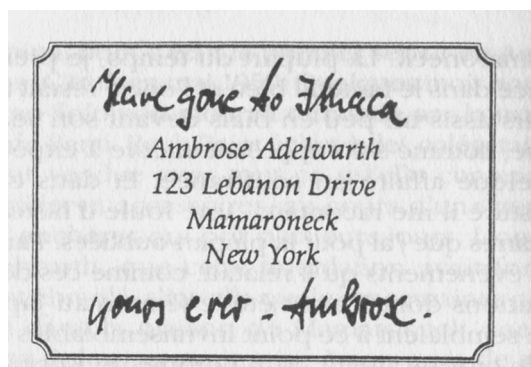 Have gone to Ithaca
Ambrose Adelwarth
123 Lebanon Drive
Mamaroneck
New York
yours ever, Ambrose.